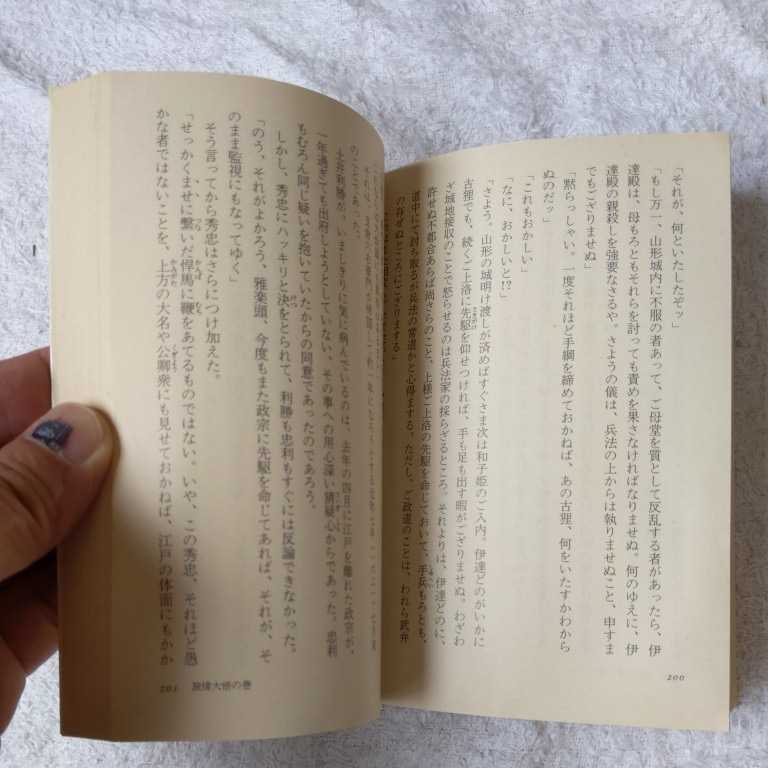 「それが、何といたしたぞッ」
「もし万一、山形城内に不服の者あって、ご母堂を質として反乱する者があったら、伊
達殿は、母もろともそれらを討っても責めを果さなければなりませぬ。何のゆえに、伊
達殿の親殺しを強要なさるや。さようの儀は、兵法の上からは執りませぬこと、申すま
でもござりませぬ」
「黙らっしゃい。一度それほど手綱を締めておかねば、あの古狸、何をいたすかわから
ぬのだッ」
「これもおかしい」
「なに、おかしいと!?」
「さよう、山形の城明け渡しが済めばすぐさま次は和子姫のご入内。伊達どのがいかに
古狸でも、続くご上洛に先駆を仰せつければ、手も足も出す暇がござりませぬ。わざわ
ざ城地接収のことで怒らせるのは兵法家の採らざるところ。それよりは、伊達どのに、
許せぬ不都合あらば尚さらのこと、上様ご上洛の先駆を命じておいて、手兵もろとも、
道中にて討ち取るが兵法の常道かと心得まする。ただし、ご政道のことは、われら武弁
の存ぜぬところにござりまする」
200
土井利勝が、いましきりに気に病んでいるのは、去年の四月に江戸を離れた政宗が、
一年過ぎても出府しようとしていない、その事への用心深い猜疑心からであった。忠利
もむろん同じ疑いを抱いていたからの同意であったのであろう。
しかし、秀忠にハッキリと決をとられて、利勝も忠利もすぐには反論できなかった。
「のう、それがよかろう、雅楽頭、今度もまた政宗に先駆を命じてあれば、それが、そ
のまま監視にもなってゆく」
そう言ってから秀忠はさらにつけ加えた。
「せっかくませに繋いだ悍馬に鞭をあてるものではない。いや、この秀忠、それほど愚
かな者ではないことを、上方の大名や公卿衆にも見せておかねば、江戸の体面にもかか
201
大悟の巻